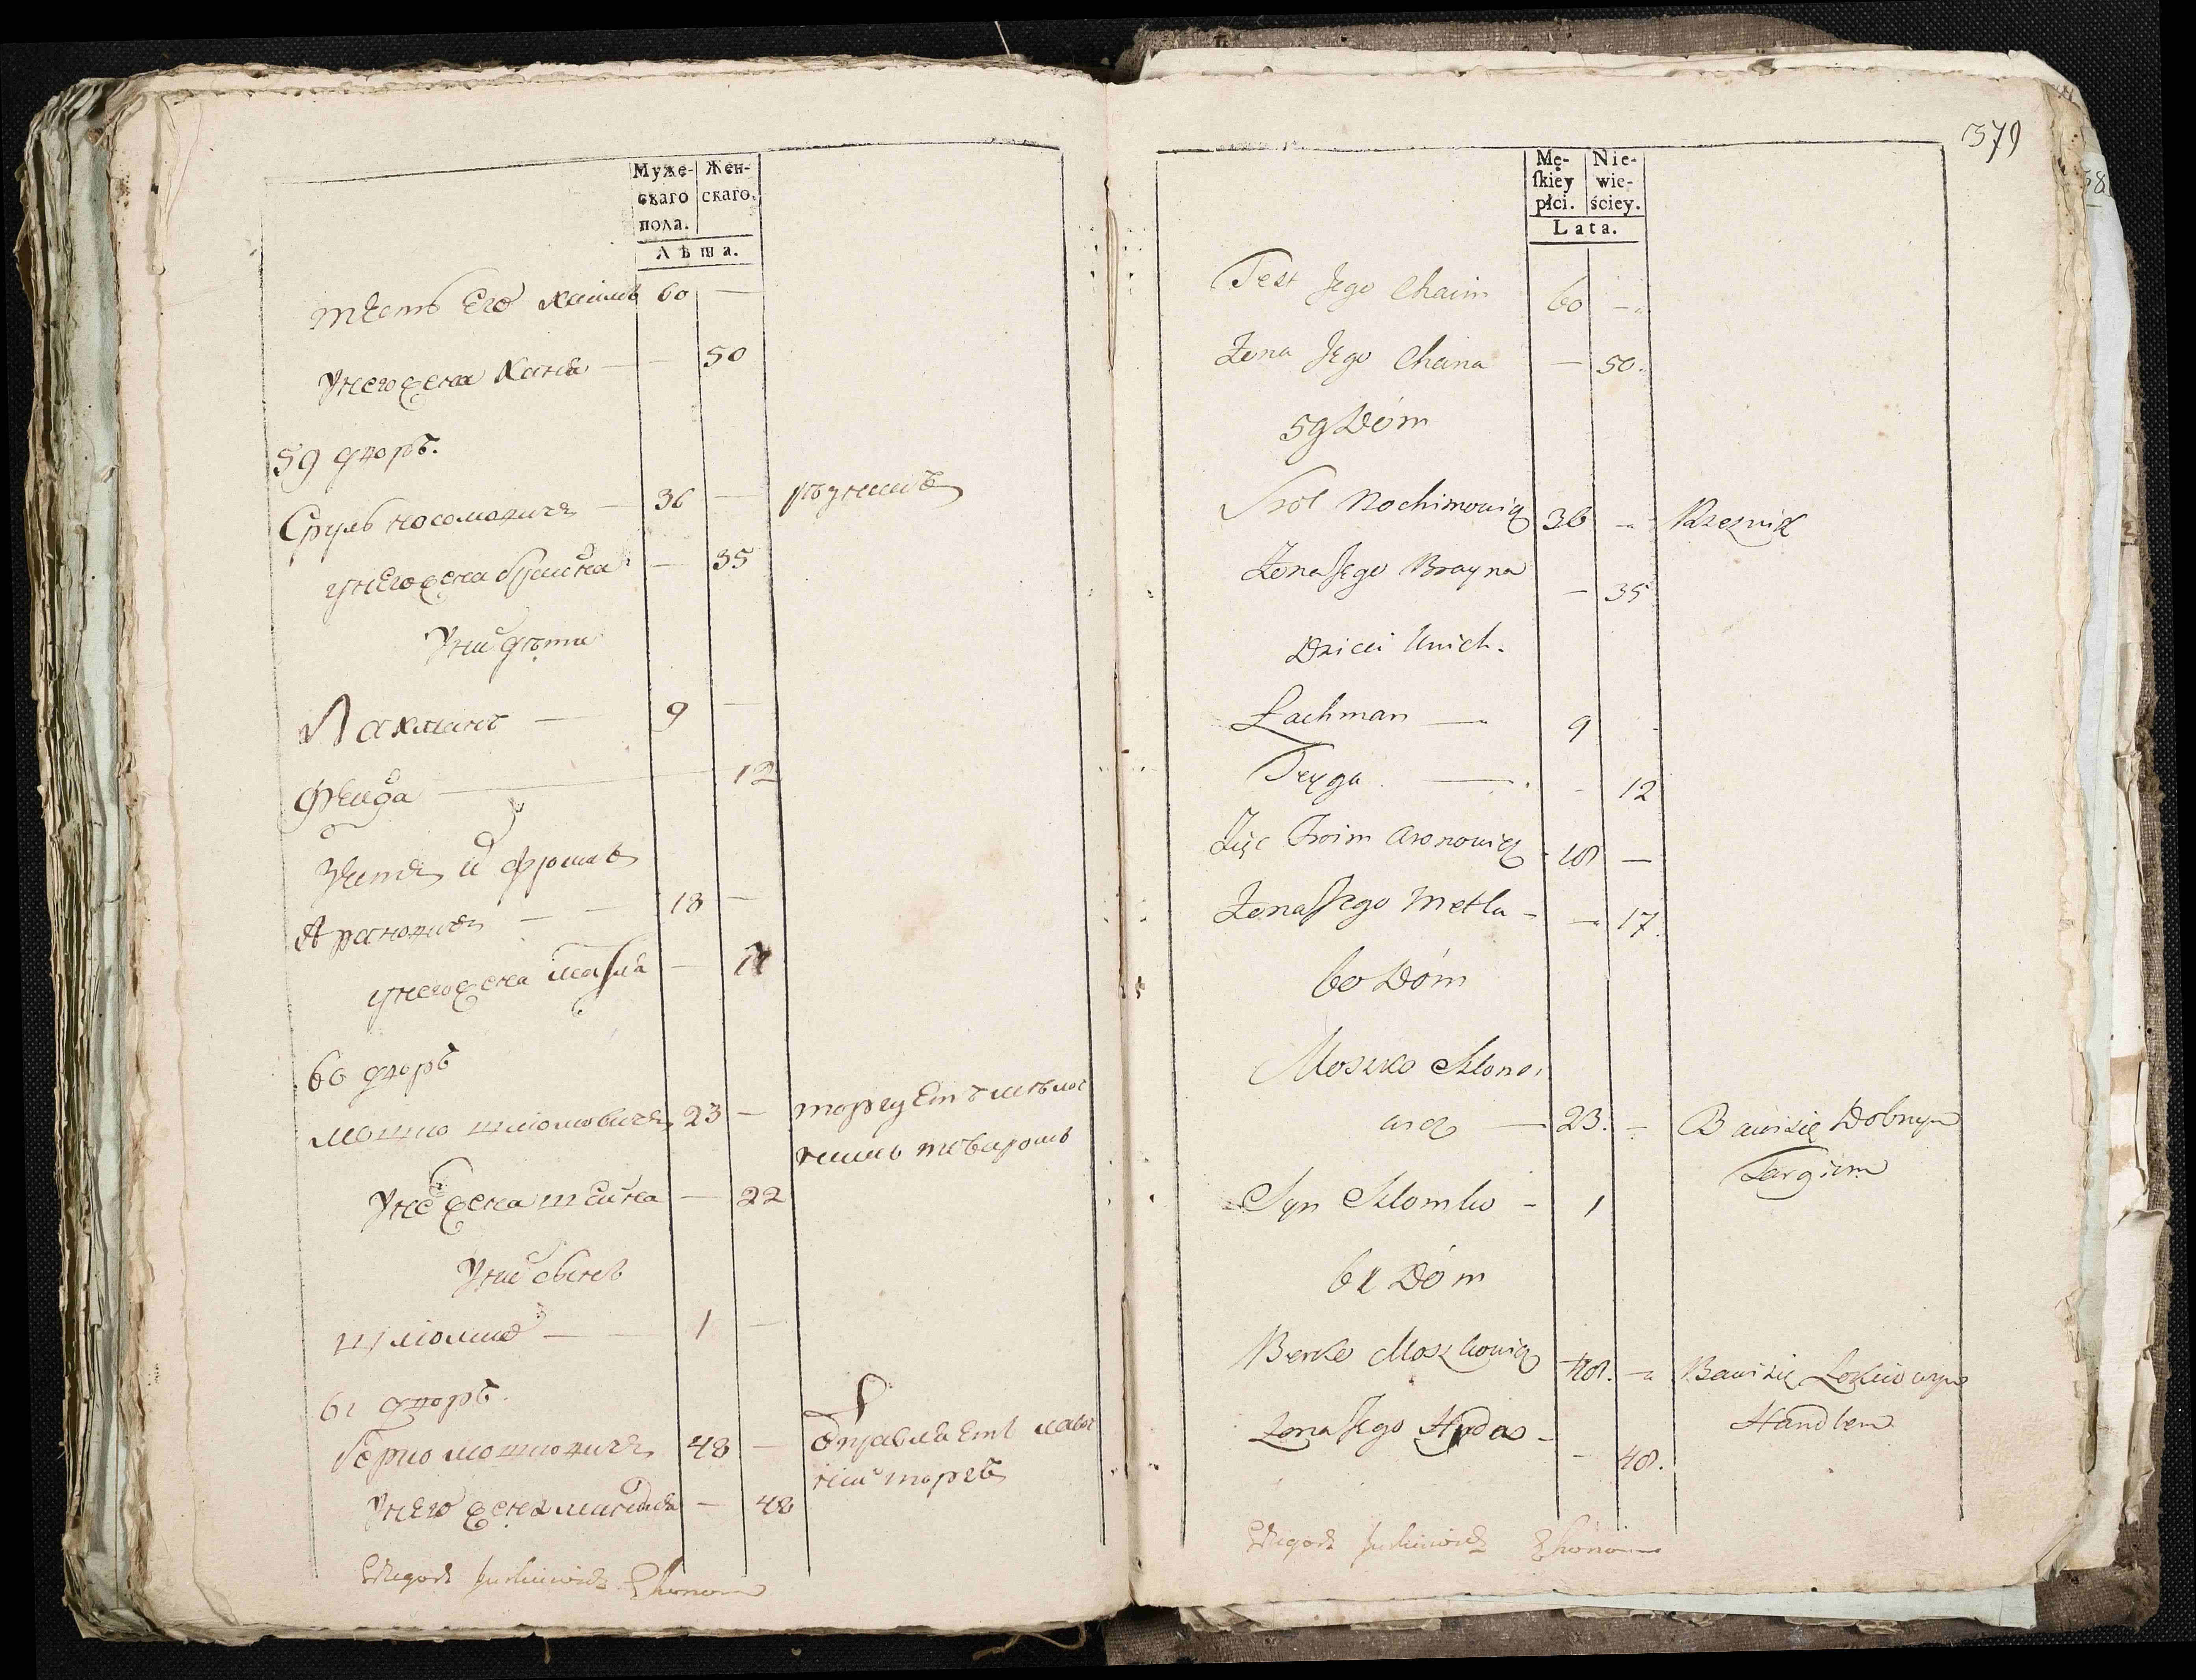 Муже-
скаго
пола.
Жен-
скаго.
Лѣта.
тесть Его хаимъ 60 —
У него жена хана — — 50
59 дворъ.
Сруль 36 —
у него жена браина — 35
У ниⷯ дѣти
Лахманъ — 9 —
Фейга — 12
Зять иⷯ фроимъ
Ароновичъ — — 18 —
у него жена —
60 дворъ
Мошко шлiомовичъ 23 — торгуетъ мѣлоч
нимъ товаромъ
У неⷢ жена шейна — 22
У ниⷯ сынъ
шлiомко — 1 —
61 дворъ.
берко мошковичъ 48 — Отправляетъ
торгъ
У него жена — 48
379
Mę-
ſkiey
płci.
Nie-
wie-
ściey.
Lata.
Test Jego Chaim 60 —
Żona Jego Chana — 50.
59 Dóm
Srol Nochimowicz 36 — Rzeznik
Żona Jego Brayna — 35
Dzieci Unich.
Lachman — 9
Feyga — - 12
Zięc Froim Aronowicz - 18 —
Żona Jego Metla - — 17.
60 Dóm
Moszko Szlomo,
wicz — 23. - Bawi się Dobnym
Targiem
Syn Szlomko - 1
61 Dóm
Berko Moszkowicz 48. — Bawi się Łokciowym
Handlem
Żona Jego - - 48.